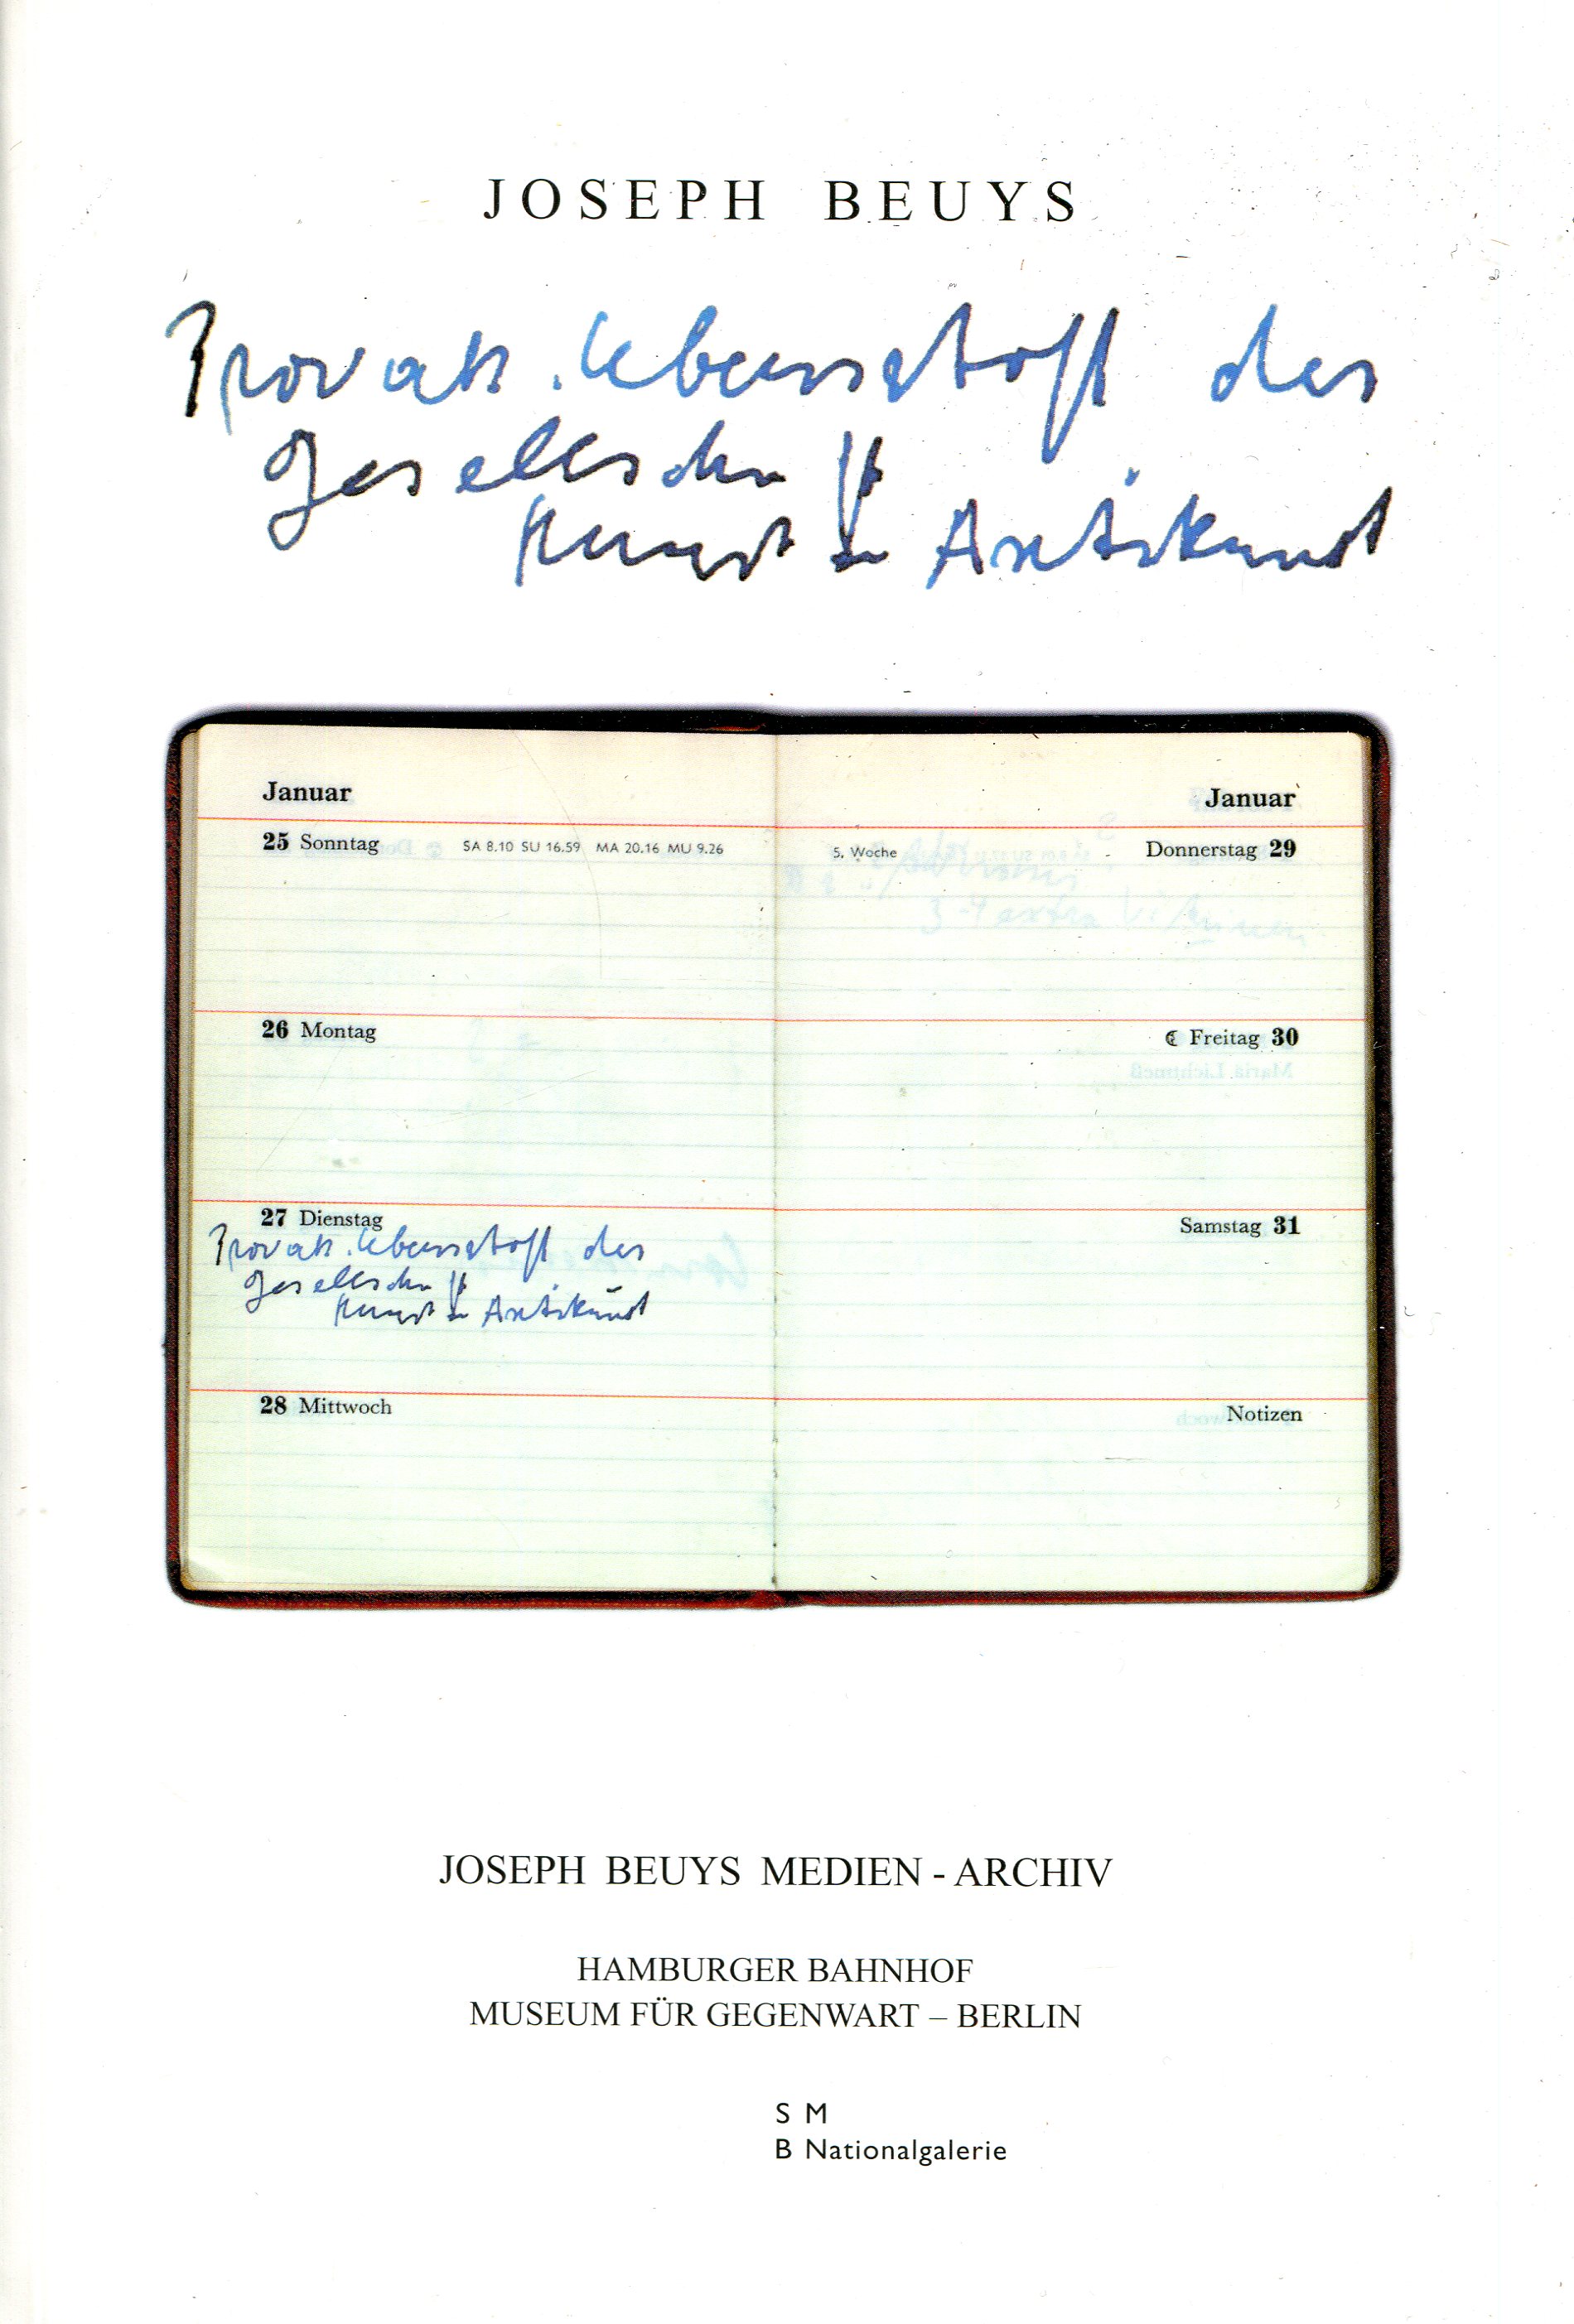 JOSEPH BEUYS
Provok. Lebensstoff der
Gesellschaft
Kunst u. Antikunst
Januar
25 Sonntag SA 8.10 SU 16.59 MA 20.16 MU 9.26
26 Montag
27 Dienstag
Provok. Lebensstoff der
Gesellschaft
Kunst u. Antikunst
28 Mittwoch
Januar
5. Woche Donnerstag 29
3-4 extra
Freitag 30
Mariä Lichtmeß
Samstag 31
Notizen
JOSEPH BEUYS MEDIEN - ARCHIV
HAMBURGER BAHNHOF
MUSEUM FÜR GEGENWART – BERLIN
S M
B Nationalgalerie